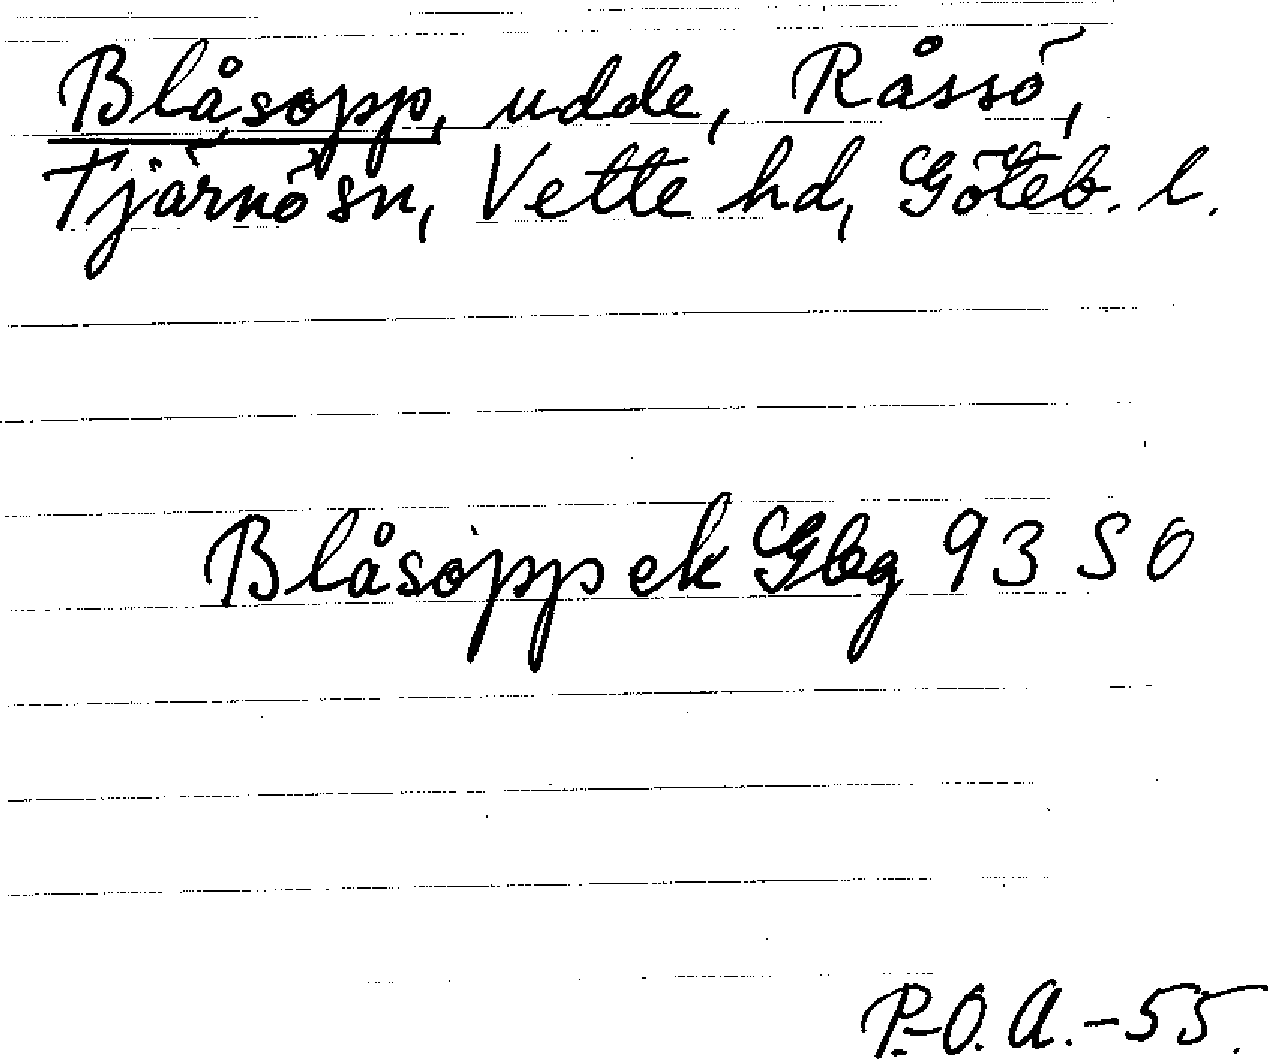 Blåsopp, udde, Råssö,
Tjärnö sn, Vette hd, Göteb. l.
Blåsopp ek Gbg 93 SO
P.-O. A. -55.